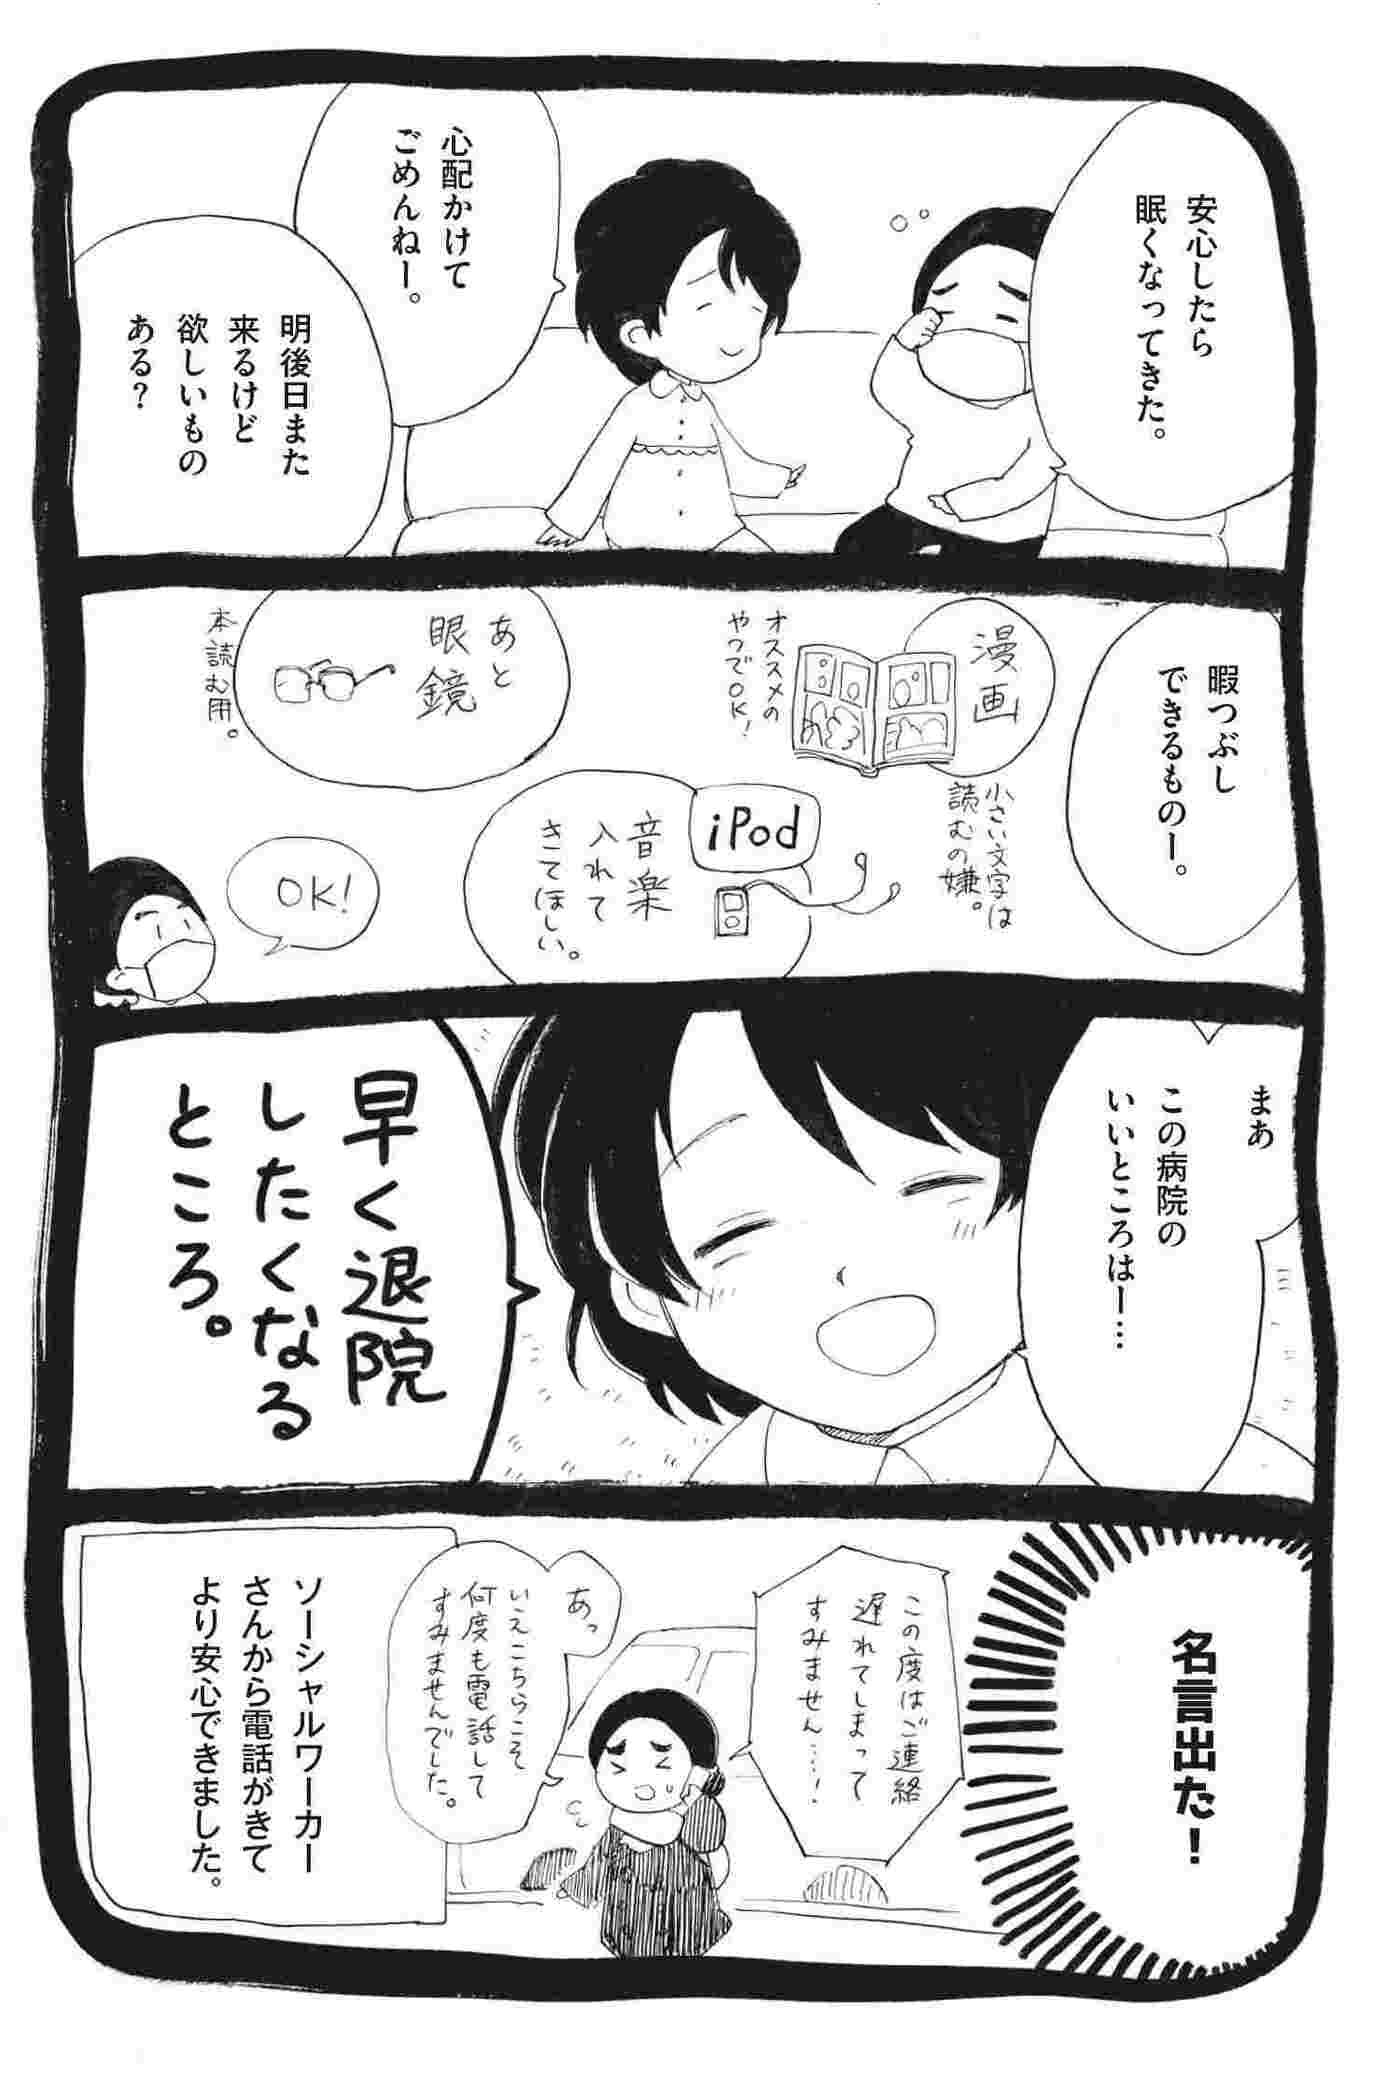 安心したら
眠くなってきた。
心配かけて
ごめんねー。
明後日また
来るけど
欲しいもの
ある?
暇つぶし
できるものー。
漫画
オススメの
やつでOK!
小さい文字は
読むの嫌。
iPod
音楽
入れて
きてほしい。
あと
眼鏡
本読む用。
OK!
まあ
この病院の
いいところはー…
早く退院
したくなる
ところ。
名言出た!
この度はご連絡
遅れてしまって
すみません…!
あっ
いえこちらこそ
何度も電話して
すみませんでした。
ソーシャルワーカー
さんから電話がきて
より安心できました。